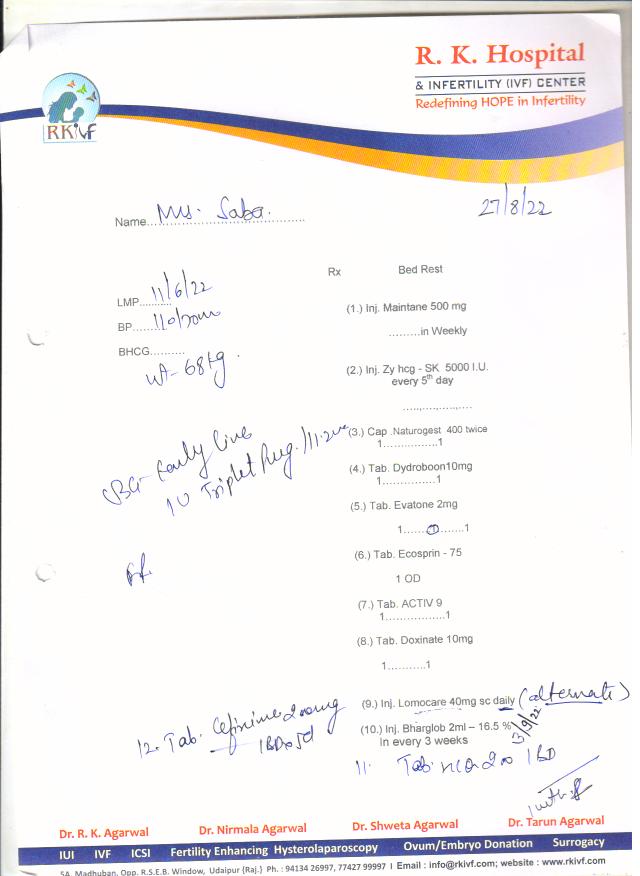 R. K. Hospital
& INFERTILITY (IVF) CENTER
Redefining HOPE in Infertility
RKiVF
27/8/22
Name.... Mrs. Saba.
Rx Bed Rest
LMP.... 11/6/22
BP.... 110/70mm
BHCG..........
wt- 68kg.
(1.) Inj. Maintane 500 mg
.........in Weekly
(2.) Inj. Zy hcg - SK 5000 I.U.
every 5th day
.....,....,....,....
(3.) Cap .Naturogest 400 twice
1................1
Early live
IU Triplet Preg.
(4.) Tab. Dydroboon10mg
1...............1
(5.) Tab. Evatone 2mg
1.......1.......1
(6.) Tab. Ecosprin - 75
1 OD
(7.) Tab. ACTIV 9
1.................1
(8.) Tab. Doxinate 10mg
1...........1
(9.) Inj. Lomocare 40mg sc daily (alternate)
(10.) Inj. Bharglob 2ml – 16.5 % 13/9/22
In every 3 weeks
11. Tab. 200 1BD
12. Tab. Cefixime 200mg
1BD x 5d
Dr. R. K. Agarwal Dr. Nirmala Agarwal Dr. Shweta Agarwal Dr. Tarun Agarwal
IUI IVF ICSI Fertility Enhancing Hysterolaparoscopy Ovum/Embryo Donation Surrogacy
5A, Madhuban, Opp. R.S.E.B. Window, Udaipur (Raj.) Ph. : 94134 26997, 77427 99997 | Email : info@rkivf.com; website : www.rkivf.com